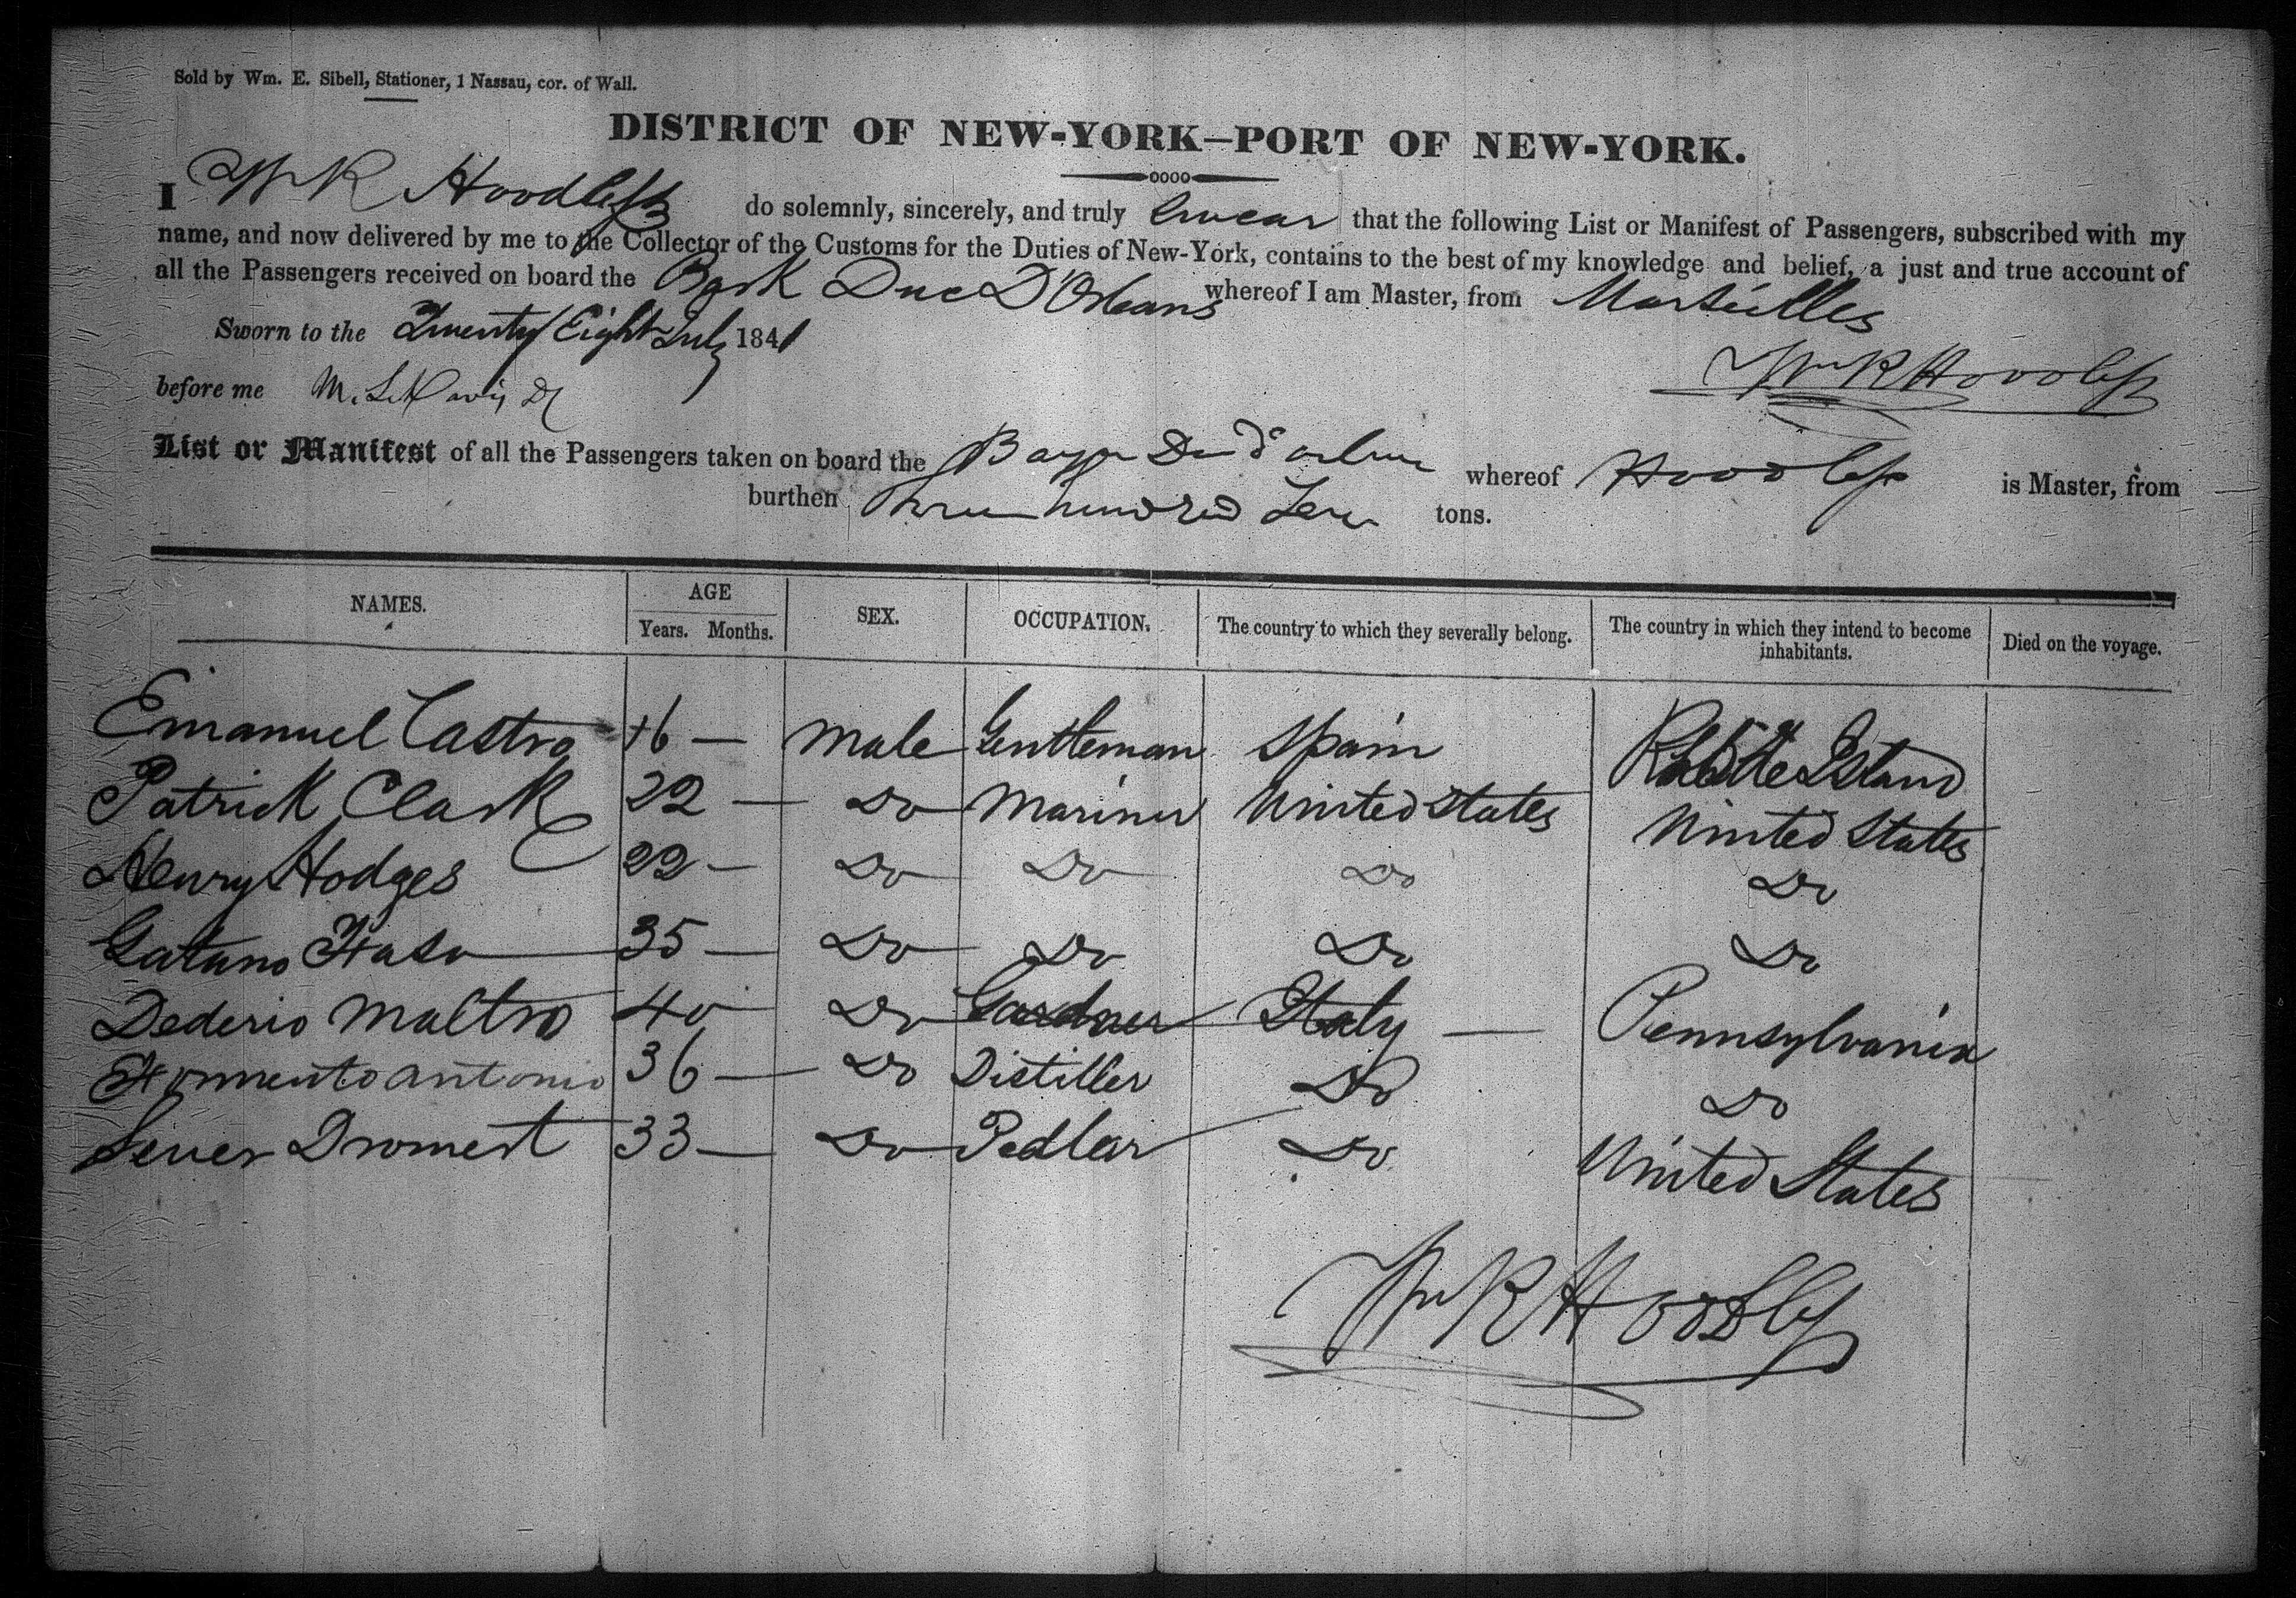 Sold by Wm. E. Sibell, Stationer, 1 Nassau, cor. of Wall.
DISTRICT OF NEW-YORK—PORT OF NEW-YORK.
I Wm R Hoodless do solemnly, sincerely, and truly swear that the following List or Manifest of Passengers, subscribed with my
name, and now delivered by me to the Collector of the Customs for the Duties of New-York, contains to the best of my knowledge and belief, a just and true account of
all the Passengers received on board the Bark Duc D'Orleans whereof I am Master, from Marseilles
Sworn to the Twenty Eight July 1841
Wm R Hoodless
before me M. L. Davis
List or Manifest of all the Passengers taken on board the Duc d'orleans whereof Hoodless is Master, from
burthen Three hundred tons.
NAMES. AGE SEX. OCCUPATION. The country to which they severally belong. The country in which they intend to become inhabitants. Died on the voyage.
Years. Months.
Emanuel Castro 16 — Male Gentleman Spain Island
Patrick Clark 22 — Do Mariner United States United States
Henry Hodges 22 — Do Do Do Do
Gatano 35 — Do Do Do Do
Dederio Maltro 40 Do Gardner Italy — Pennsylvania
Antonio 36 — Do Distiller Do Do
Dromert 33 — Do Pedlar Do United States
Wm R Hoodless